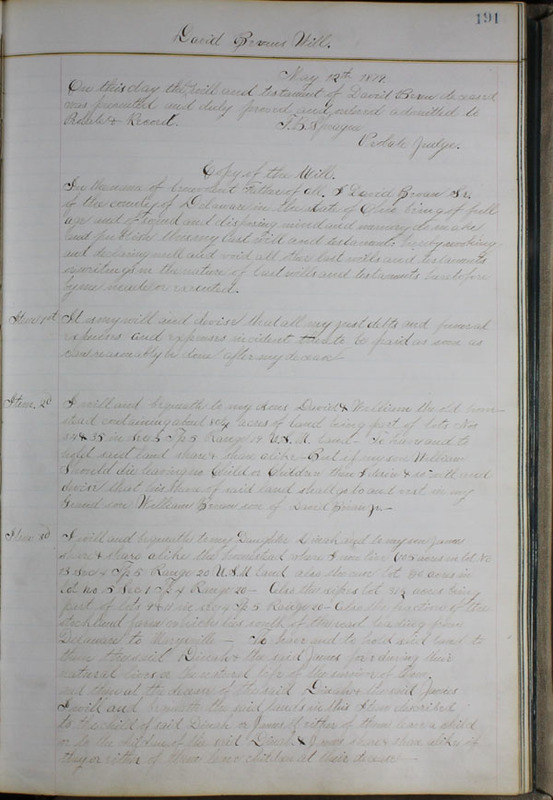 191
David Bevans Will.
May 12th 1879.
On this day the Will and Testament of David Bevan deceased
was presented and duly proved and ordered admitted to
Probate & Record. T. B. Sprague
Probate Judge.
Copy of the Will.
In the name of benevolent Father of all, I David Bevan Sr.
of the county of Delaware in the State of Ohio being of full
age and of sound and disposing mind and memory do make
and publish this my last will and testament, hereby revoking
and declaring null and void all other last wills and testaments
or writings in the nature of last wills and testaments heretofore
by me made or executed.
Item 1st It is my will and devise that all my just debts and funeral
expenses and expenses incident to be paid as soon as
can reasonably be done after my decease
Item 2d I will and bequeath to my sons David & William the old home-
stead containing about acres of land being part of lots Nos
34 & 35 in Sec Tp 5 Range 19 U.S.M. Land - To have and to
hold said land share & share alike - But if my son William
should die leaving no Child or Children then I desire & so will and
devise that his share of said land shall go to and vest in my
Grand son William Bevan son of David Bevan Jr -
Item 3d I will and bequeath to my Daughter Dinah and to my son James
share & share alike the homestead where I now live acres in lot No
13 Sec 4 Tp 5 Range 20 U.S.M. land also the acres in
lot no 5 Sec 1 Tp 4 Range 20 - Also the lot acres being
part of lots in Sec 4 Tp 5 Range 20 - Also the fraction of the
land farm which lies south of the road leading from
Delaware to Marysville - To have and to hold said land to
them the said Dinah & the said James for & during their
natural lives & the natural life of the survivor of them
and then at the decease of the said Dinah & the said James
I will and bequeath the said lands in this Item described
to the child of said Dinah or James if either of them leave a child
or to the children of the said Dinah & James share & share alike if
they or either of them leave children at their decease -